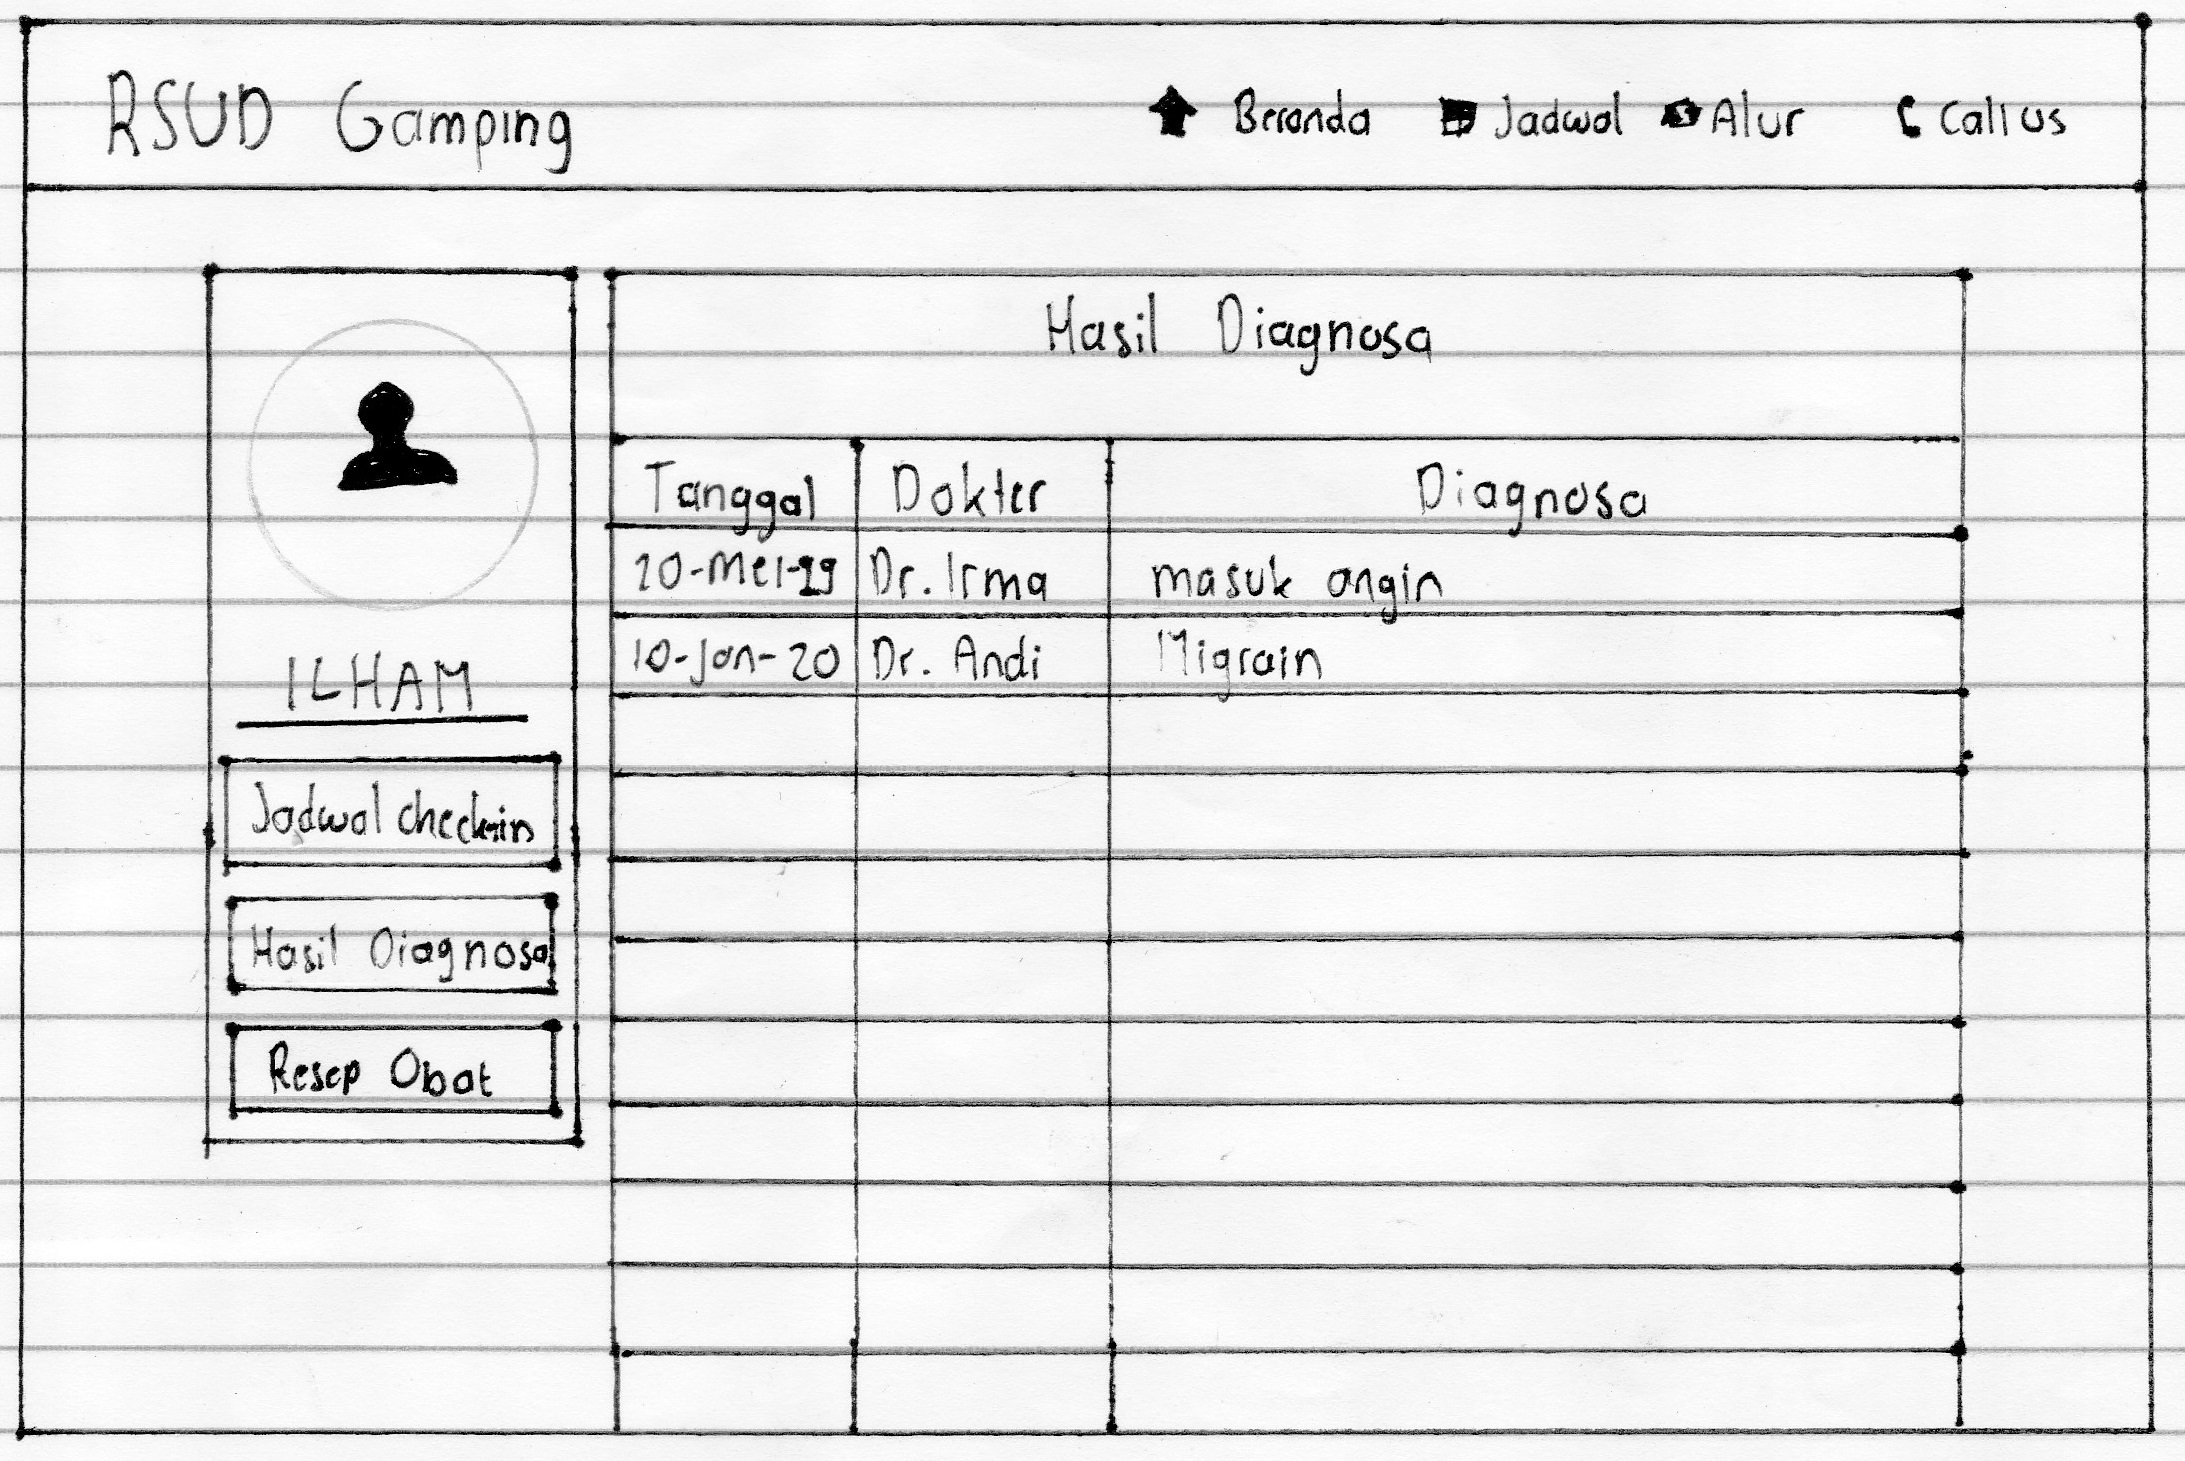 RSUD Gamping
Beranda Jadwal Alur Call us
ILHAM
Jadwal checkin
Hasil Diagnosa
Resep Obat
Hasil Diagnosa
Tanggal Dokter Diagnosa
20-Mei-99 Dr. Irma masuk angin
10-Jan-20 Dr. Andi Migrain